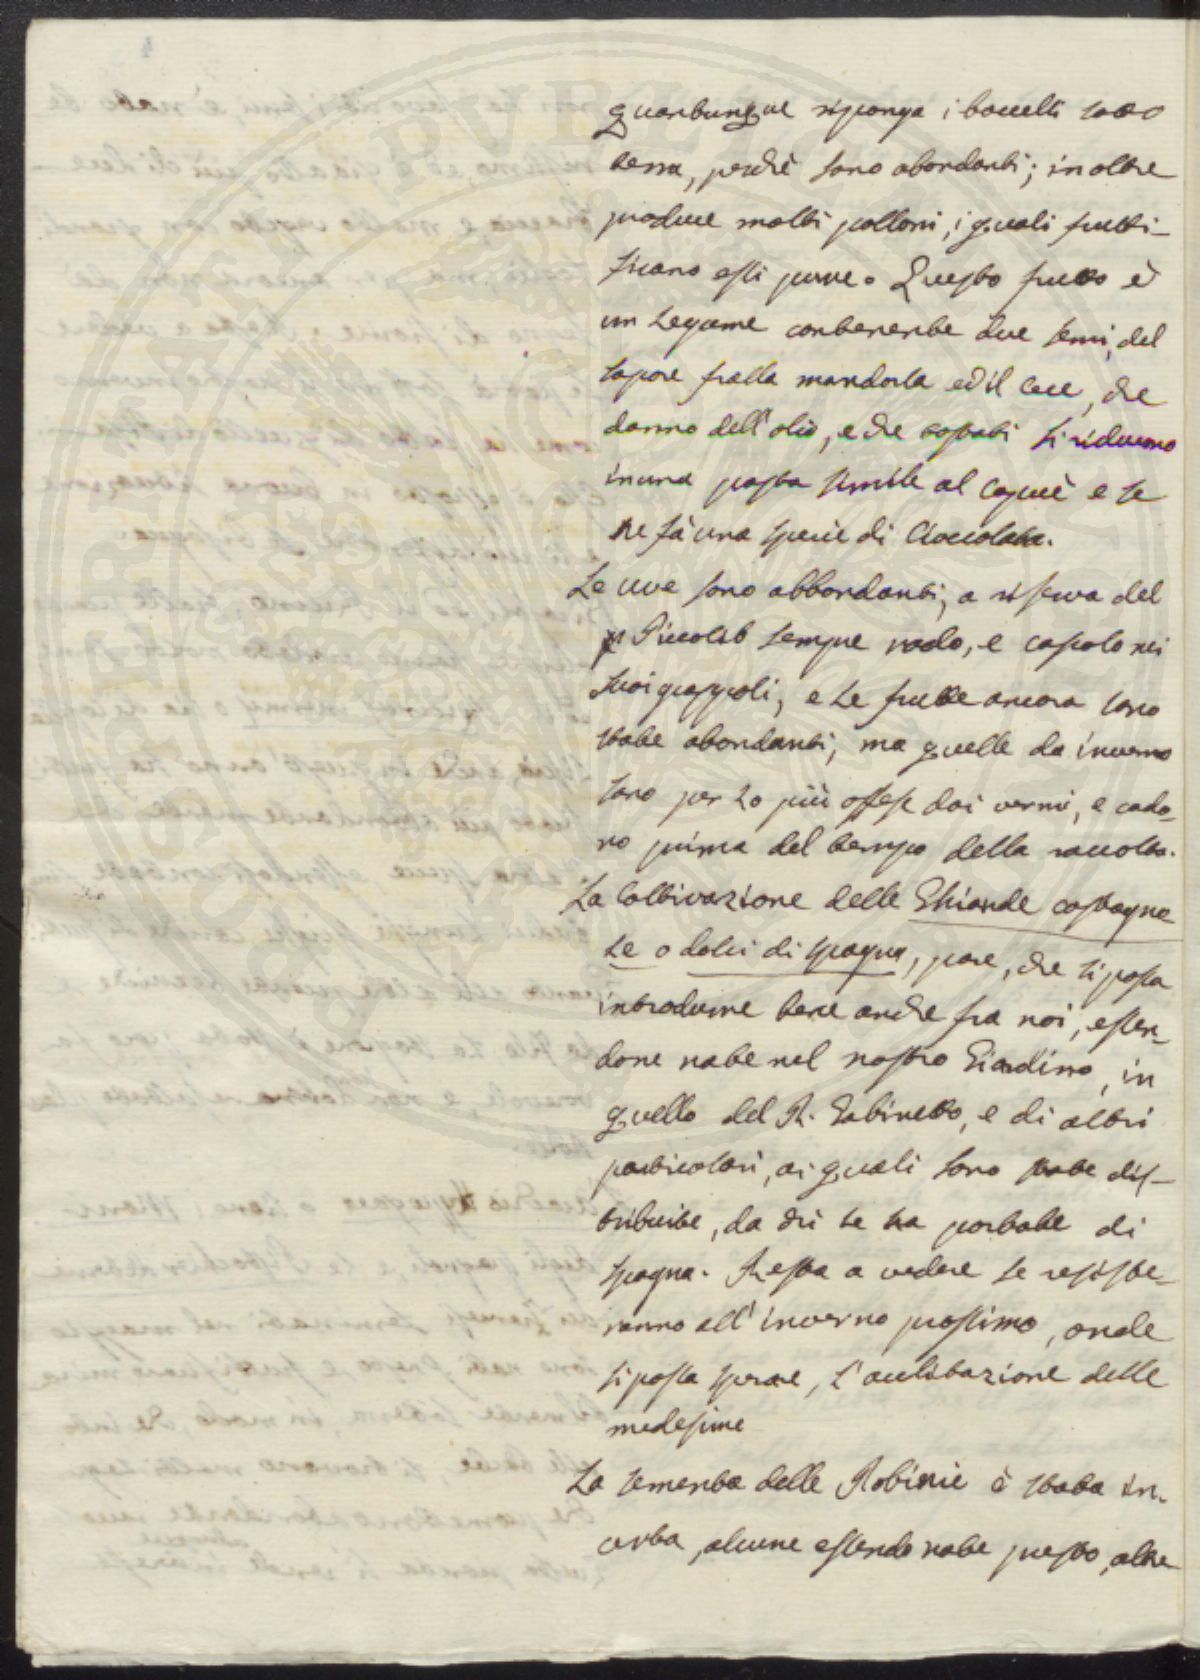 quantunque riponga i bacelli sotto
terra, perchè sono abondanti; inoltre
produce molti polloni, i quali frutti-
ficano essi pure. Questo frutto è
un Legume contenente due semi, del
sapore fralla mandorla ed il Cece, che
danno dell'olio, e che tostati si riducono
in una pasta simile al Caccaò e se
ne fà una specie di Cioccolata.
Le uve sono abbondanti, a riserva del
Piccolit sempre rado, e casca nei
suoi grappoli, e le frutte ancora sono
state abondanti, ma quelle da inverno
sono per lo più offese dai vermi, e cado-
no prima del tempo della raccolta.
La Coltivazione delle Ghiande castagno
le o dolci di Spagna, pare, che si possa
introdurre bene anche fra noi, essen-
done nate nel nostro Giardino, in
quello del R. Gabinetto, e di altri
particolari, ai quali sono state dis-
tribuite, da chi le ha portate di
Spagna. Resta a vedere se resiste-
ranno all'inverno prossimo, onde
si possa sperare, l'acclitazione delle
medesime
La sementa delle Robinie è stata in-
certa, alcune essendo nate presto, altre